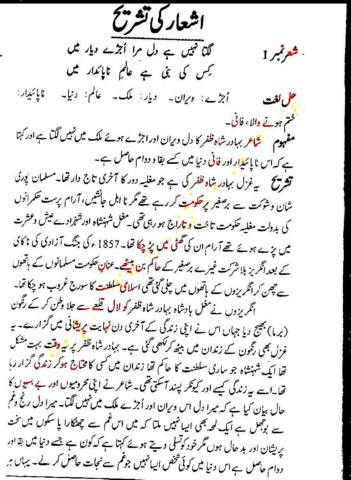 اشعار کی تشریح
شعر نمبر 1 لگتا نہیں ہے دل مرا اُجڑے دیار میں
کِس کی بنی ہے عالمِ ناپائدار میں
حلِ لغت اُجڑے: ویران۔ دیار: ملک۔ عالم: دنیا۔ ناپائیدار:
ختم ہونے والا، فانی۔
مفہوم شاعر بہادر شاہ ظفر کا دل ویران اور اجڑے ہوئے ملک میں نہیں لگتا ہے اور کہتا
ہے کہ اس ناپائیدار اور فانی دنیا میں کسے بقا و دوام حاصل ہے۔
تشریح یہ غزل بہادر شاہ ظفر کی ہے جو مغلیہ دور کا آخری تاج دار تھا۔ مسلمان پوری
شان و شوکت سے برصغیر پر حکومت کر رہے تھے مگر نا اہل جانشین، آرام پرست حکمرانوں
کی بدولت مغلیہ حکومت تاخت و تاراج ہو رہی تھی۔ مغل شہنشاہ اور شہزادے عیش و عشرت
میں پڑے ہوئے تھے آرام ان کی گھٹی میں پڑ چکا تھا۔ 1857ء کی جنگ آزادی کی ناکامی
کے بعد انگریز بلا شرکت غیرے برصغیر کے حاکم بن بیٹھے، عنانِ حکومت مسلمانوں کے ہاتھوں
سے چھن کر انگریزوں کے ہاتھوں میں چلی گئی تھی اسلامی سلطنت کا سورج غروب ہو چکا تھا۔
انگریزوں نے مغل بادشاہ بہادر شاہ ظفر کو لال قلعے سے جلا وطن کر کے رنگون
(برما) بھیج دیا جہاں اس نے اپنی زندگی کے آخری دن نہایت پریشانی میں گزارے۔ یہ
غزل بھی رنگون کے زندان میں بیٹھ کر لکھی گئی ہے۔ بہادر شاہ ظفر پر یہ وقت بہت مشکل
تھا ایک شہنشاہ جو ساری سلطنت کا حاکم تھا زندان میں کسی کا محتاج ہو کر زندگی گزار رہا
تھا۔ اسے یہ زندگی کیسے اور کیونکر پسند آسکتی تھی۔ شاعر نے اپنی محرومیوں اور بے بسیوں کا
حال بیان کیا ہے کہ میرا دل اس ویران اور اجڑے ملک میں نہیں لگتا۔ میرا دل رنج و غم
سے بوجھل ہے ایک لمحہ بھی ایسا نہیں ملتا کہ میں اس غم سے چھٹکارا پا سکوں میں سخت
پریشان اور بد حال ہوں مگر خود کو تسلی دیتے ہوئے کہتا ہے کہ کون ہے جسے دنیا میں بقا اور
دوام حاصل ہے اس دنیا میں کوئی شخص ایسا نہیں جو غم سے نجات حاصل کر لے۔ یہاں ہر